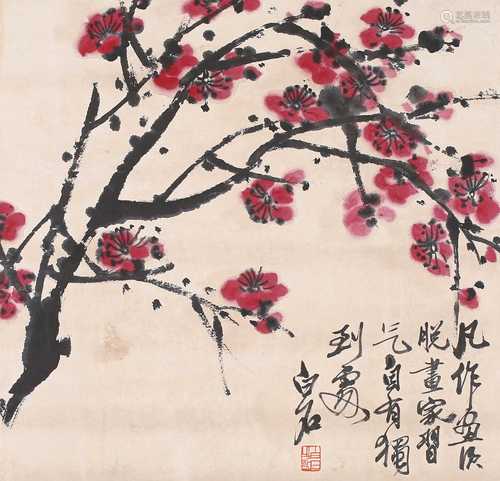 凡作畫須
脫畫家習
气自有獨
到處
白石